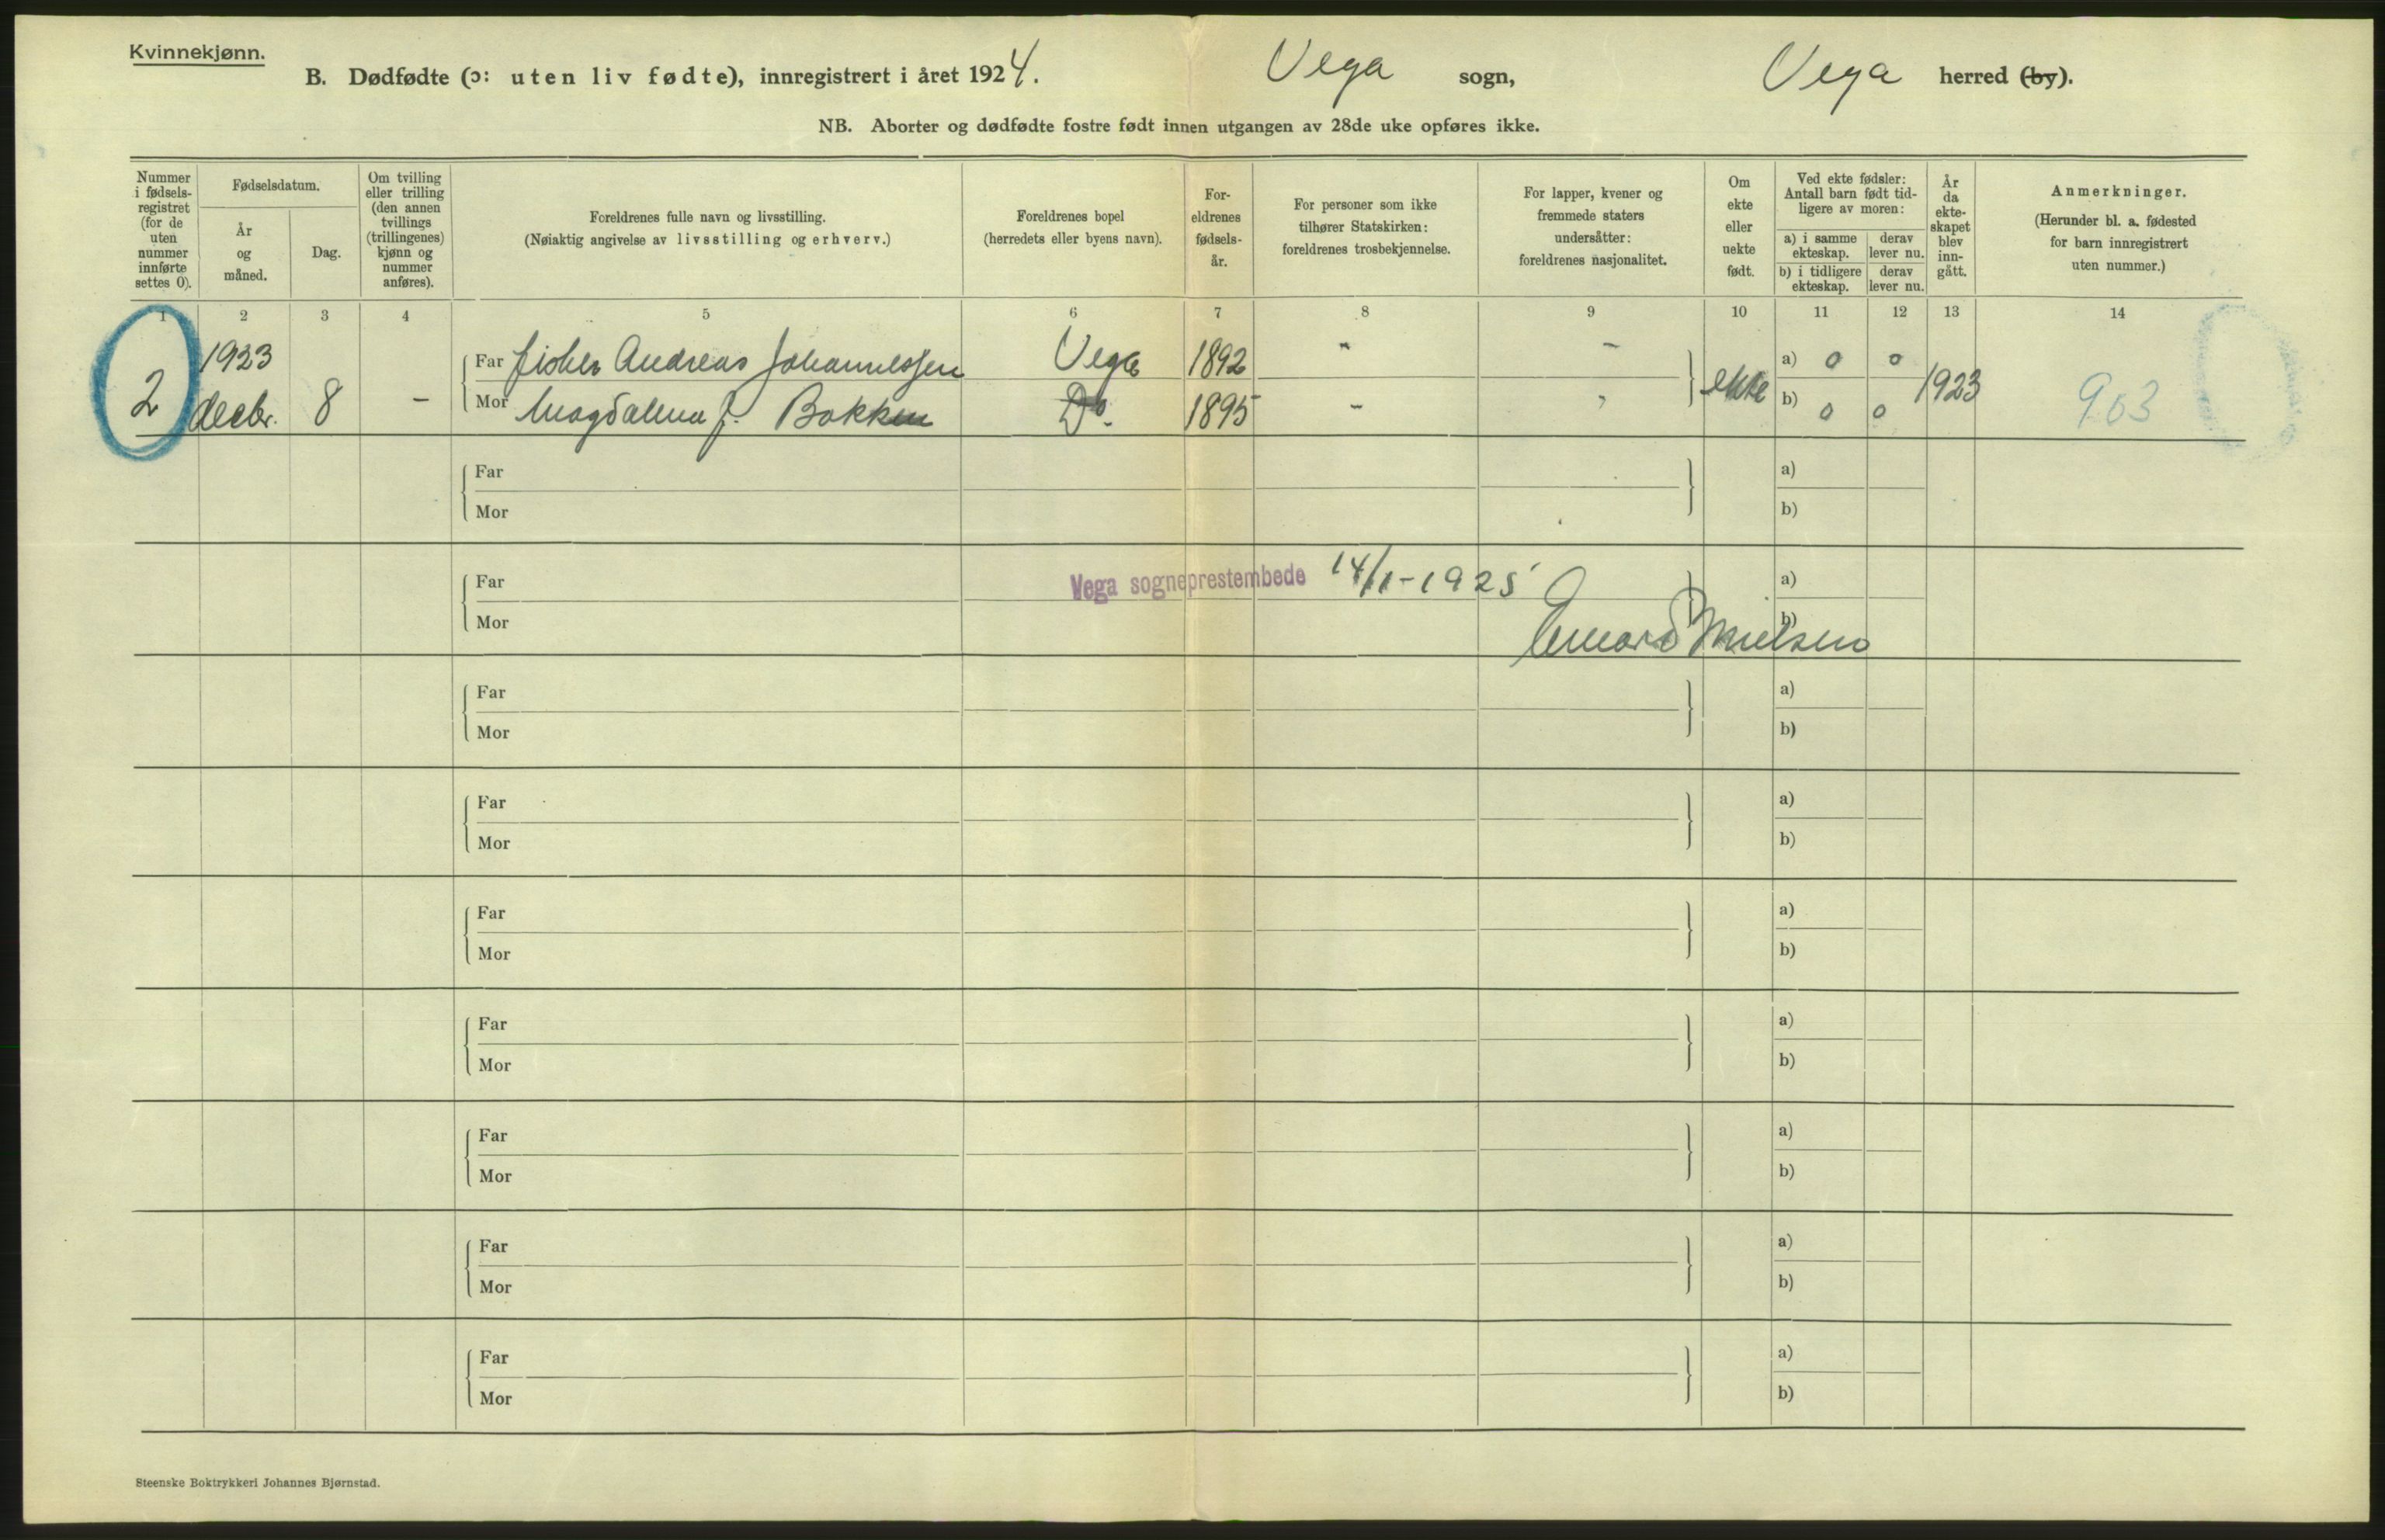 Kvinnekjønn.
B. Dødfødte (ɔ: uten liv fødte), innregistrert i året 1924. Vega sogn, Vega herred (by).
NB. Aborter og dødfødte fostre født innen utgangen av 28de uke opføres ikke.
Nummer
i fødsels-
registret
(for de
uten
nummer
innførte
settes 0).
Fødselsdatum.
År
og
måned.
Dag.
Om tvilling
eller trilling
(den annen
tvillings
(trillingenes)
kjønn og
nummer
anføres).
Foreldrenes fulle navn og livsstilling.
(Nøiaktig angivelse av livsstilling og erhverv.)
Foreldrenes bopel
(herredets eller byens navn).
For-
eldrenes
fødsels-
år.
For personer som ikke
tilhører Statskirken:
foreldrenes trosbekjennelse.
For lapper, kvener og
fremmede staters
undersåtter:
foreldrenes nasjonalitet.
Om
ekte
eller
uekte
født.
Ved ekte fødsler:
Antall barn født tid-
ligere av moren:
a) i samme
ekteskap.
derav
lever nu.
b) i tidligere
ekteskap.
derav
lever nu.
År
da
ekte-
skapet
blev
inn-
gått.
Anmerkninger.
(Herunder bl. a. fødested
for barn innregistrert
uten nummer.)
1 2 3 4 5 6 7 8 9 10 11 12 13 14
1923 Far fisker Andreas Johannessen Vega 1892 " - a) 0 0
2 decbr. 8 - Mor Magdalena J. Bakken Do. 1895 - , ekte b) 0 0 1923 903
Far a)
Mor b)
Far Vega sogneprestembede 14/1-1925 a)
Mor b)
Far a)
Mor b)
Far a)
Mor b)
Far a)
Mor b)
Far a)
Mor b)
Far a)
Mor b)
Far a)
Mor b)
Far a)
Mor b)
Steenske Boktrykkeri Johannes Bjørnstad.